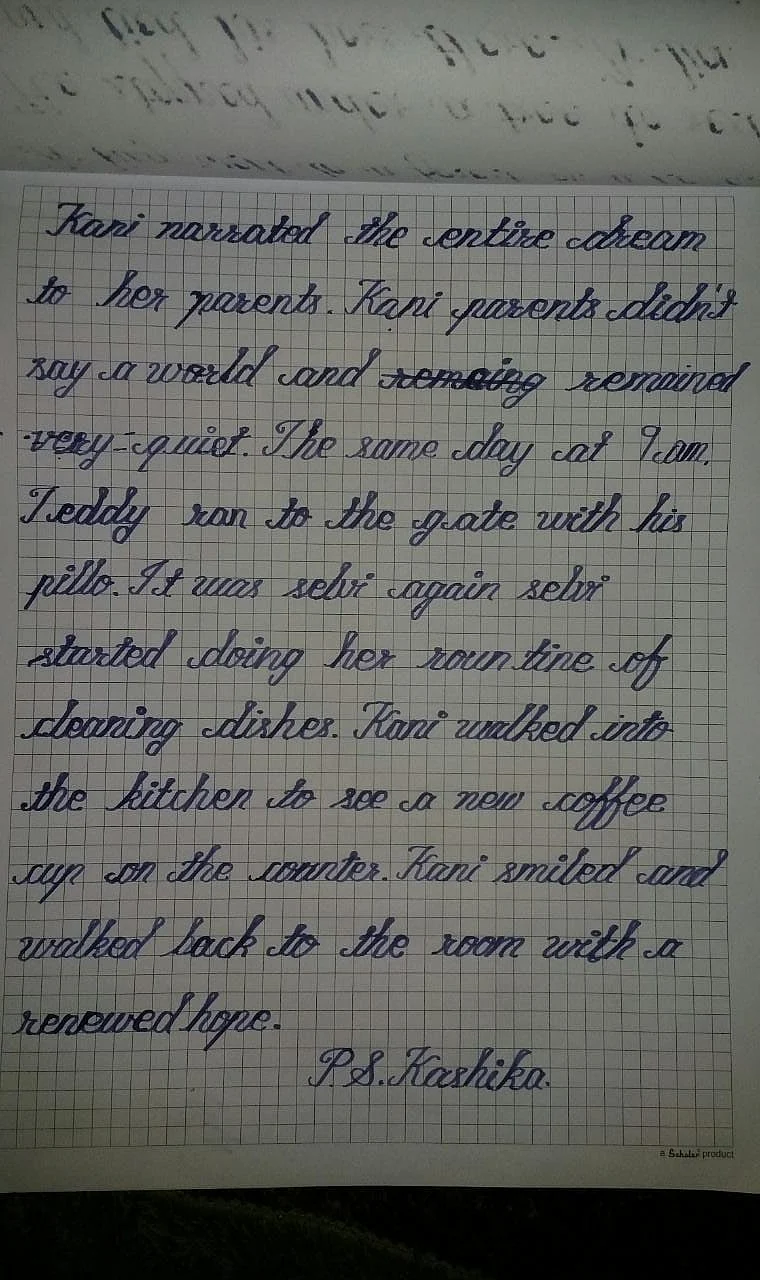 Kani narrated the entire dream
to her parents. Kani parents didn't
say a world and remaing remained
very-quiet. The same day at 9am.
Teddy ran to the gate with his
pillo. It was selvi again selvi
started doing her rountine of
cleaning dishes. Kani walked into
the kitchen to see a new coffee
cup on the counter. Kani smiled and
walked back to the room with a
renewed hope.
P.S.Kashika.
a Scholar product